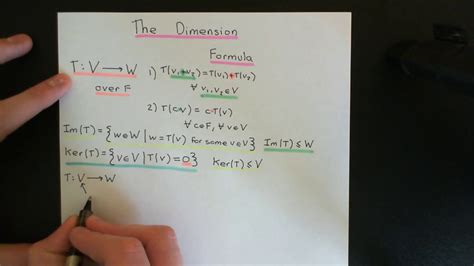 The Dimension
Formula
T: V → W
over F
1) T(v₁+v₂)=T(v₁)+T(v₂)
∀ v₁,v₂∈V
2) T(cv)=cT(v)
∀ c∈F, ∀ v∈V
Im(T)={w∈W | w=T(v) for some v∈V} Im(T)≤W
Ker(T)={v∈V | T(v)=0} Ker(T)≤V
T: V → W